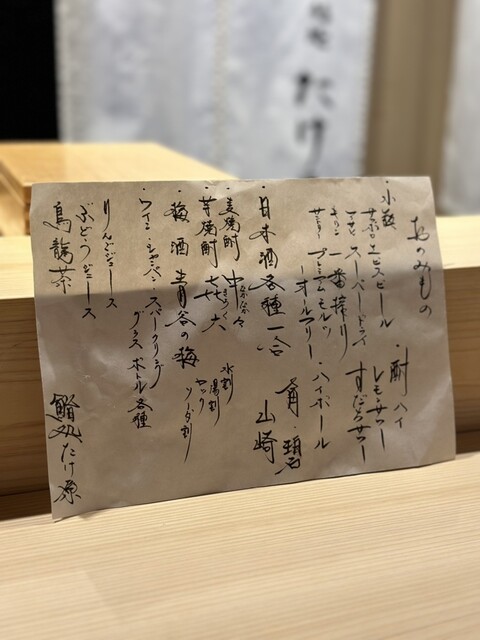 おのみもの
・小瓶
サッポロ エビスビール
アサヒ スーパードライ
キリン 一番搾り
サントリー プレミアムモルツ
ーオールフリー
・酎ハイ
レモンサワー
すだちサワー
・ハイボール
角・碧
山崎
・日本酒各種一合
・麦焼酎 中々
なかなか
・芋焼酎 㐂六
きろく
水割
湯割
ロック
ソーダ割
・梅酒 青谷の梅
・ワイン・シャンパン・スパークリング
グラス ボトル 各種
りんごジュース
ぶどうジュース
烏龍茶
鮨処たけ源
たけ